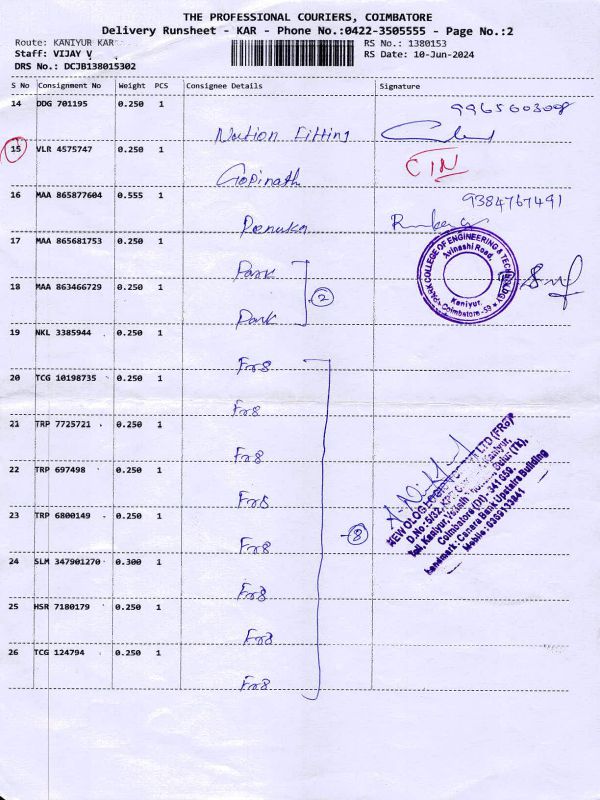 THE PROFESSIONAL COURIERS, COIMBATORE
Delivery Runsheet - KAR - Phone No.:0422-3505555 - Page No.:2
Route: KANIYUR KAR
RS No.: 1380153
Staff: VIJAY V
RS Date: 10-Jun-2024
DRS No.: DCJB138015302
S No Consignment No Weight PCS Consignee Details Signature
14 DDG 701195 0.250 1
Nation Fitting
15 VLR 4575747 0.250 1
Gopinath
16 MAA 865877604 0.555 1 9384767491
Renuka
17 MAA 865681753 0.250 1
Park
18 MAA 863466729 0.250 1
Park
2
PARK COLLEGE OF ENGINEERING & TECHNOLOGY
Avinashi Road,
Kaniyur,
Coimbatore - 59
19 NKL 3385944 0.250 1
Fr8
20 TCG 10198735 0.250 1
Fr8
21 TRP 7725721 0.250 1
Fr8
22 TRP 697498 0.250 1
Fr8
23 TRP 6800149 0.250 1
Fr8
8
24 SLM 347901270 0.300 1
Fr8
25 HSR 7180179 0.250 1
Fr8
26 TCG 124794 0.250 1
Fr8
Coimbatore (Dt) - 641 659.
Landmark : Canara Bank Upstairs Building